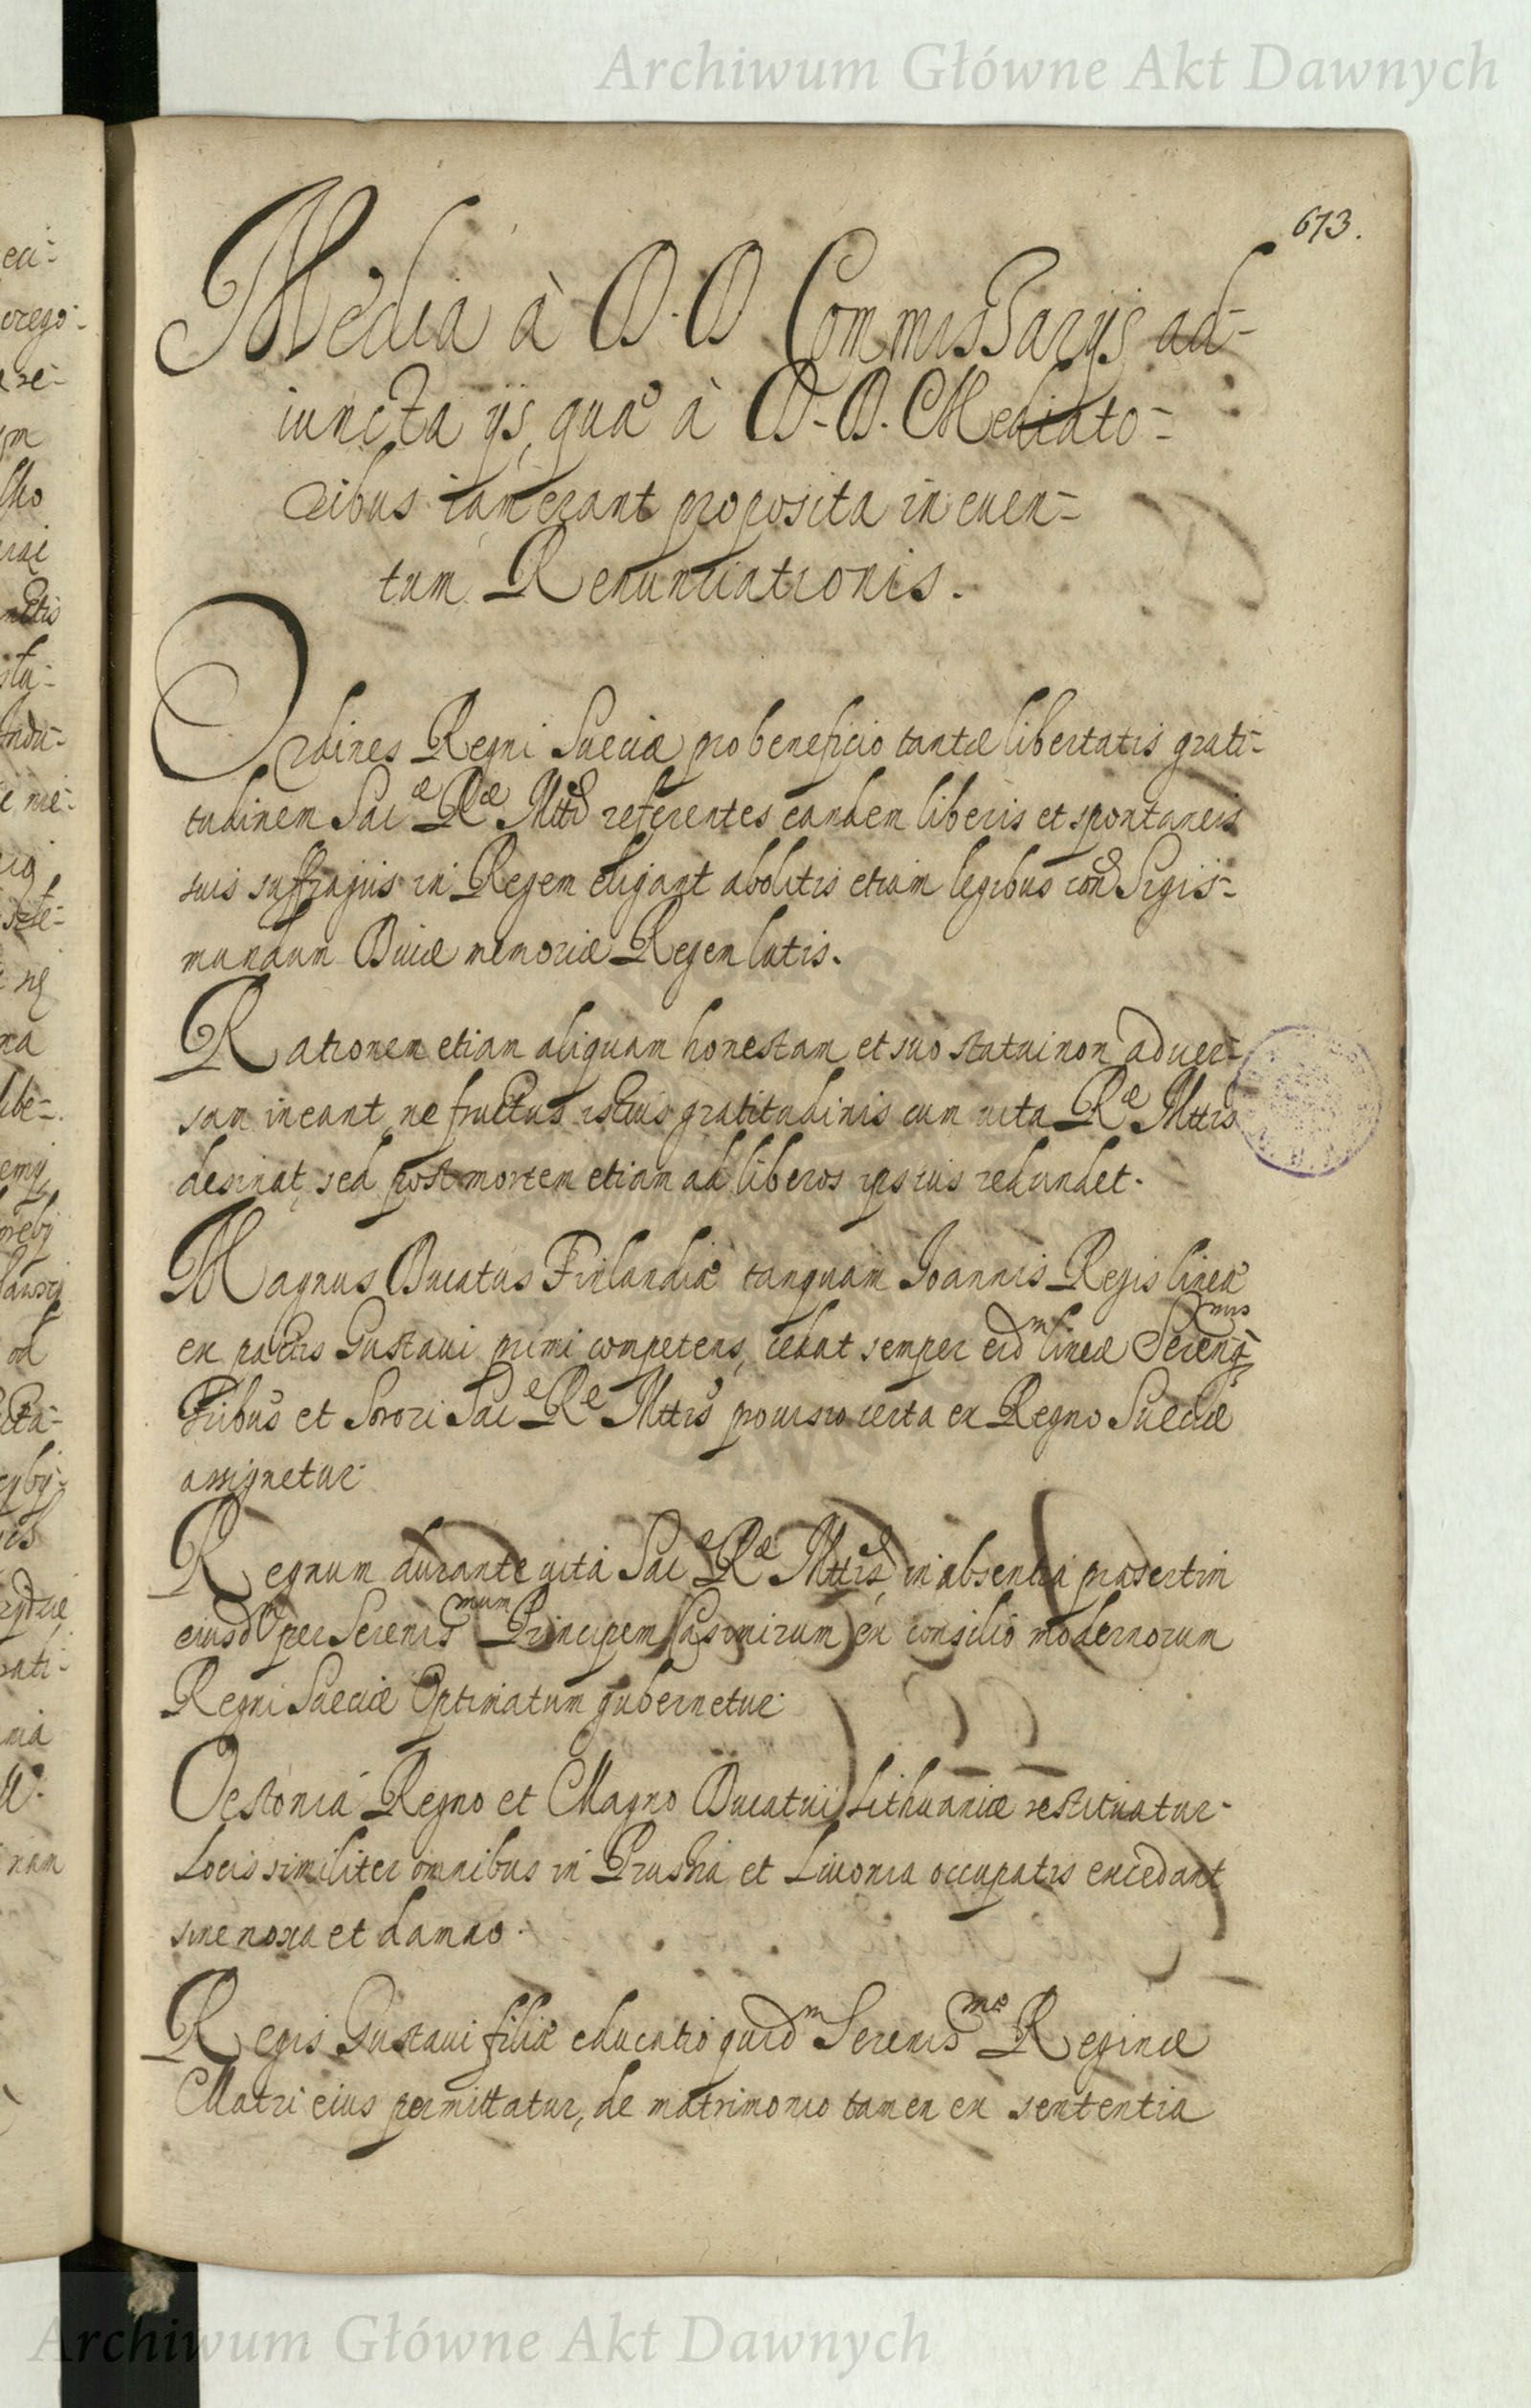 Archiwum Główne Akt Dawnych
613.
Media à D.D Commissarijs ad-
iuncta ijs, quæ à D.D. Mediato-
ribus iam erant proposita in euen-
tum Renuntiationis.
Ordines Regni Sueciæ pro beneficio tantæ libertatis grati-
tudinem Sacæ Ræ Mttis referentes eandem liberis et spontaneis
suis suffragijs in Regem eligant abolitis etiam legibus con Sigis-
mundum Diuæ memoriæ Regem latis.
Rationem etiam aliquam honestam et suo statui non aduer-
sam ineant, ne fructus istius gratitudinis cum uita Ræ Mttis
desinat, sed post mortem etiam ad liberos ipsius redundet.
Magnus Ducatus Finlandiæ tanquam Joannis Regis lineæ
ex pactis Gustaui primi competens, cedat semper eidm lineæ Serenis
mis
Fribus et Sorori Sac Re Mttis prouisio certa ex Regno Sueciæ
assignetur.
Regnum durante uita Sacæ Ræ Mttis in absentia præsertim
eiusdm per Serenismum Principem Casimirum ex consilio modernorum
Regni Sueciæ Optimatum gubernetur.
Oestonia Regno et Magno Ducatui Lithuaniæ restituatur.
Locis similiter omnibus in Prussia et Liuonia occupatis excedant
sine noxa et damno.
Regis Gustaui filiæ educatio quidm Serenismæ Reginæ
Matri eius permittatur, de matrimonio tamen ex sententia
Archiwum Główne Akt Dawnych